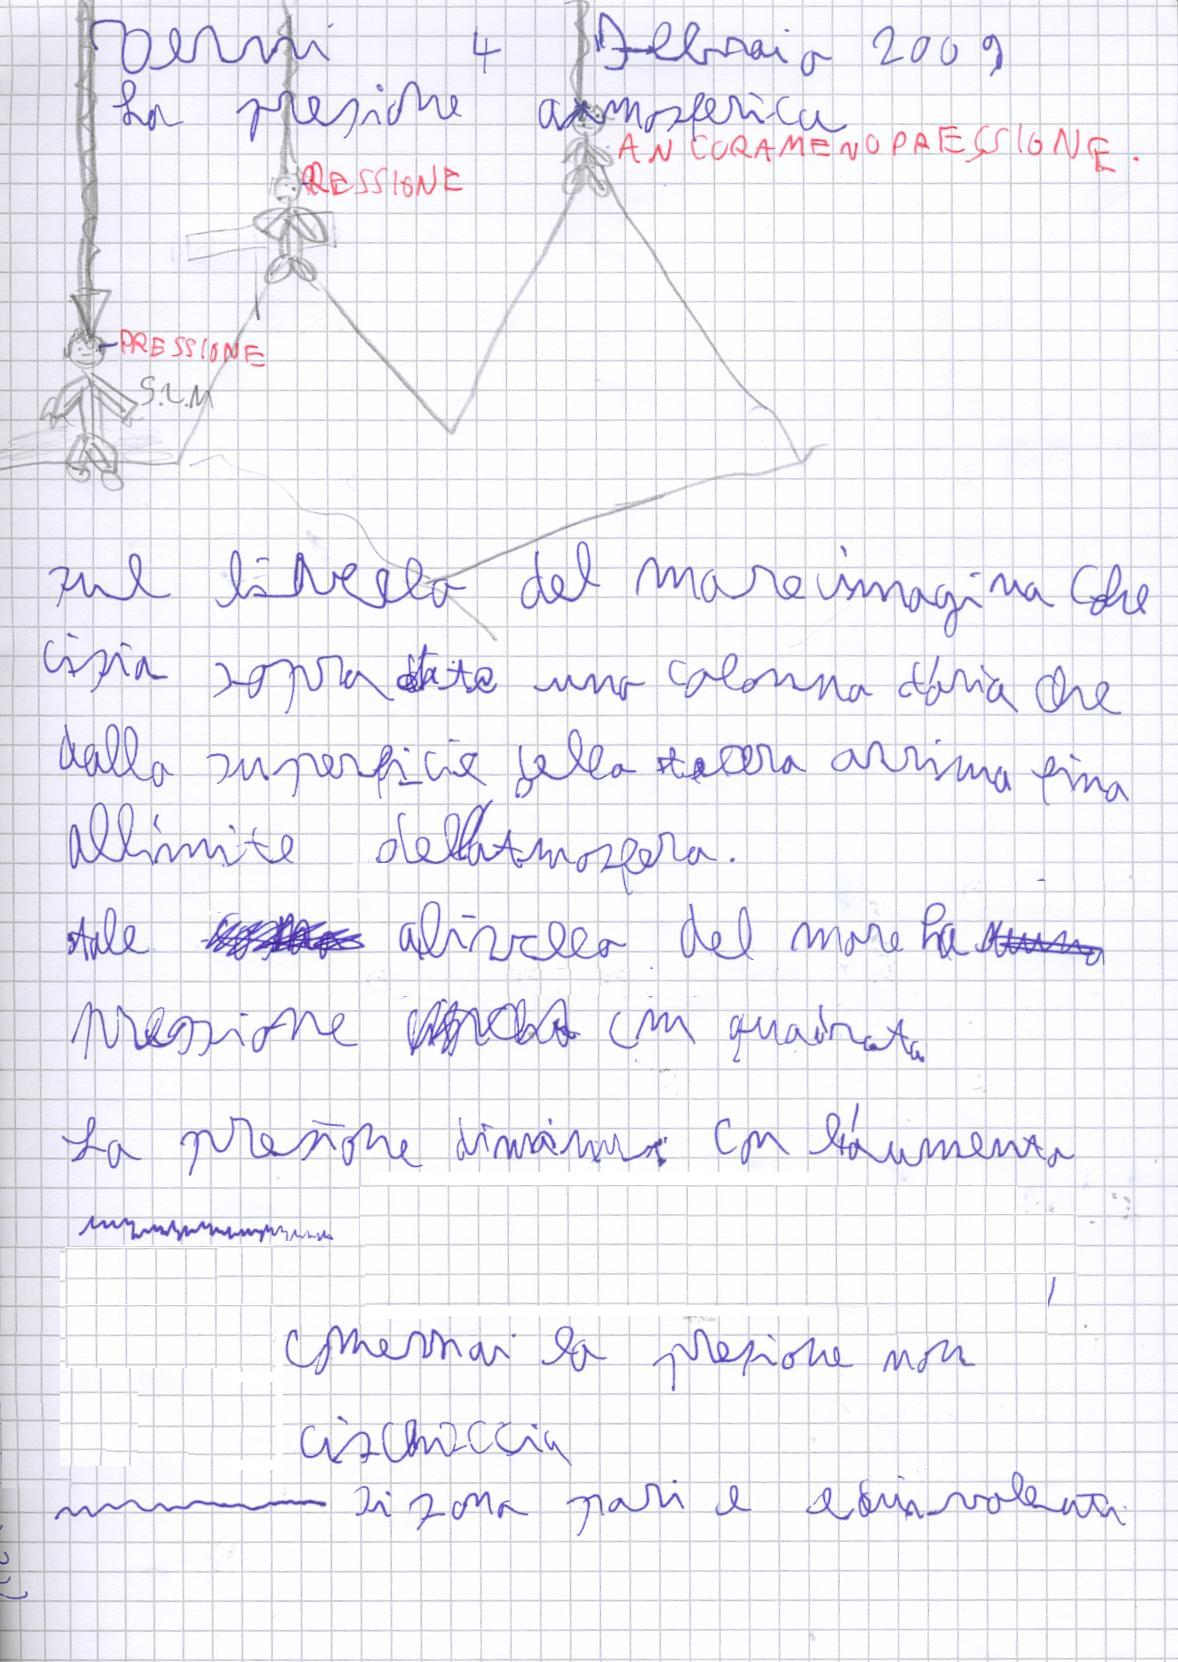 Terni 4 Febbraio 2009
La presione atmosferica
ANCORAMENOPRESSIONE.
PRESSIONE
PRESSIONE
S.L.M
sul livello del mare imagina che
cisia sopra te una colonna daria che
dalla superficie della terra arriva fino
allimite dellatmosfera.
tale alivello del mare ha
pressione cm quadrato
La presione con l'aumento
comemai la presione non
cischiaccia
si sono pari e equivalenti